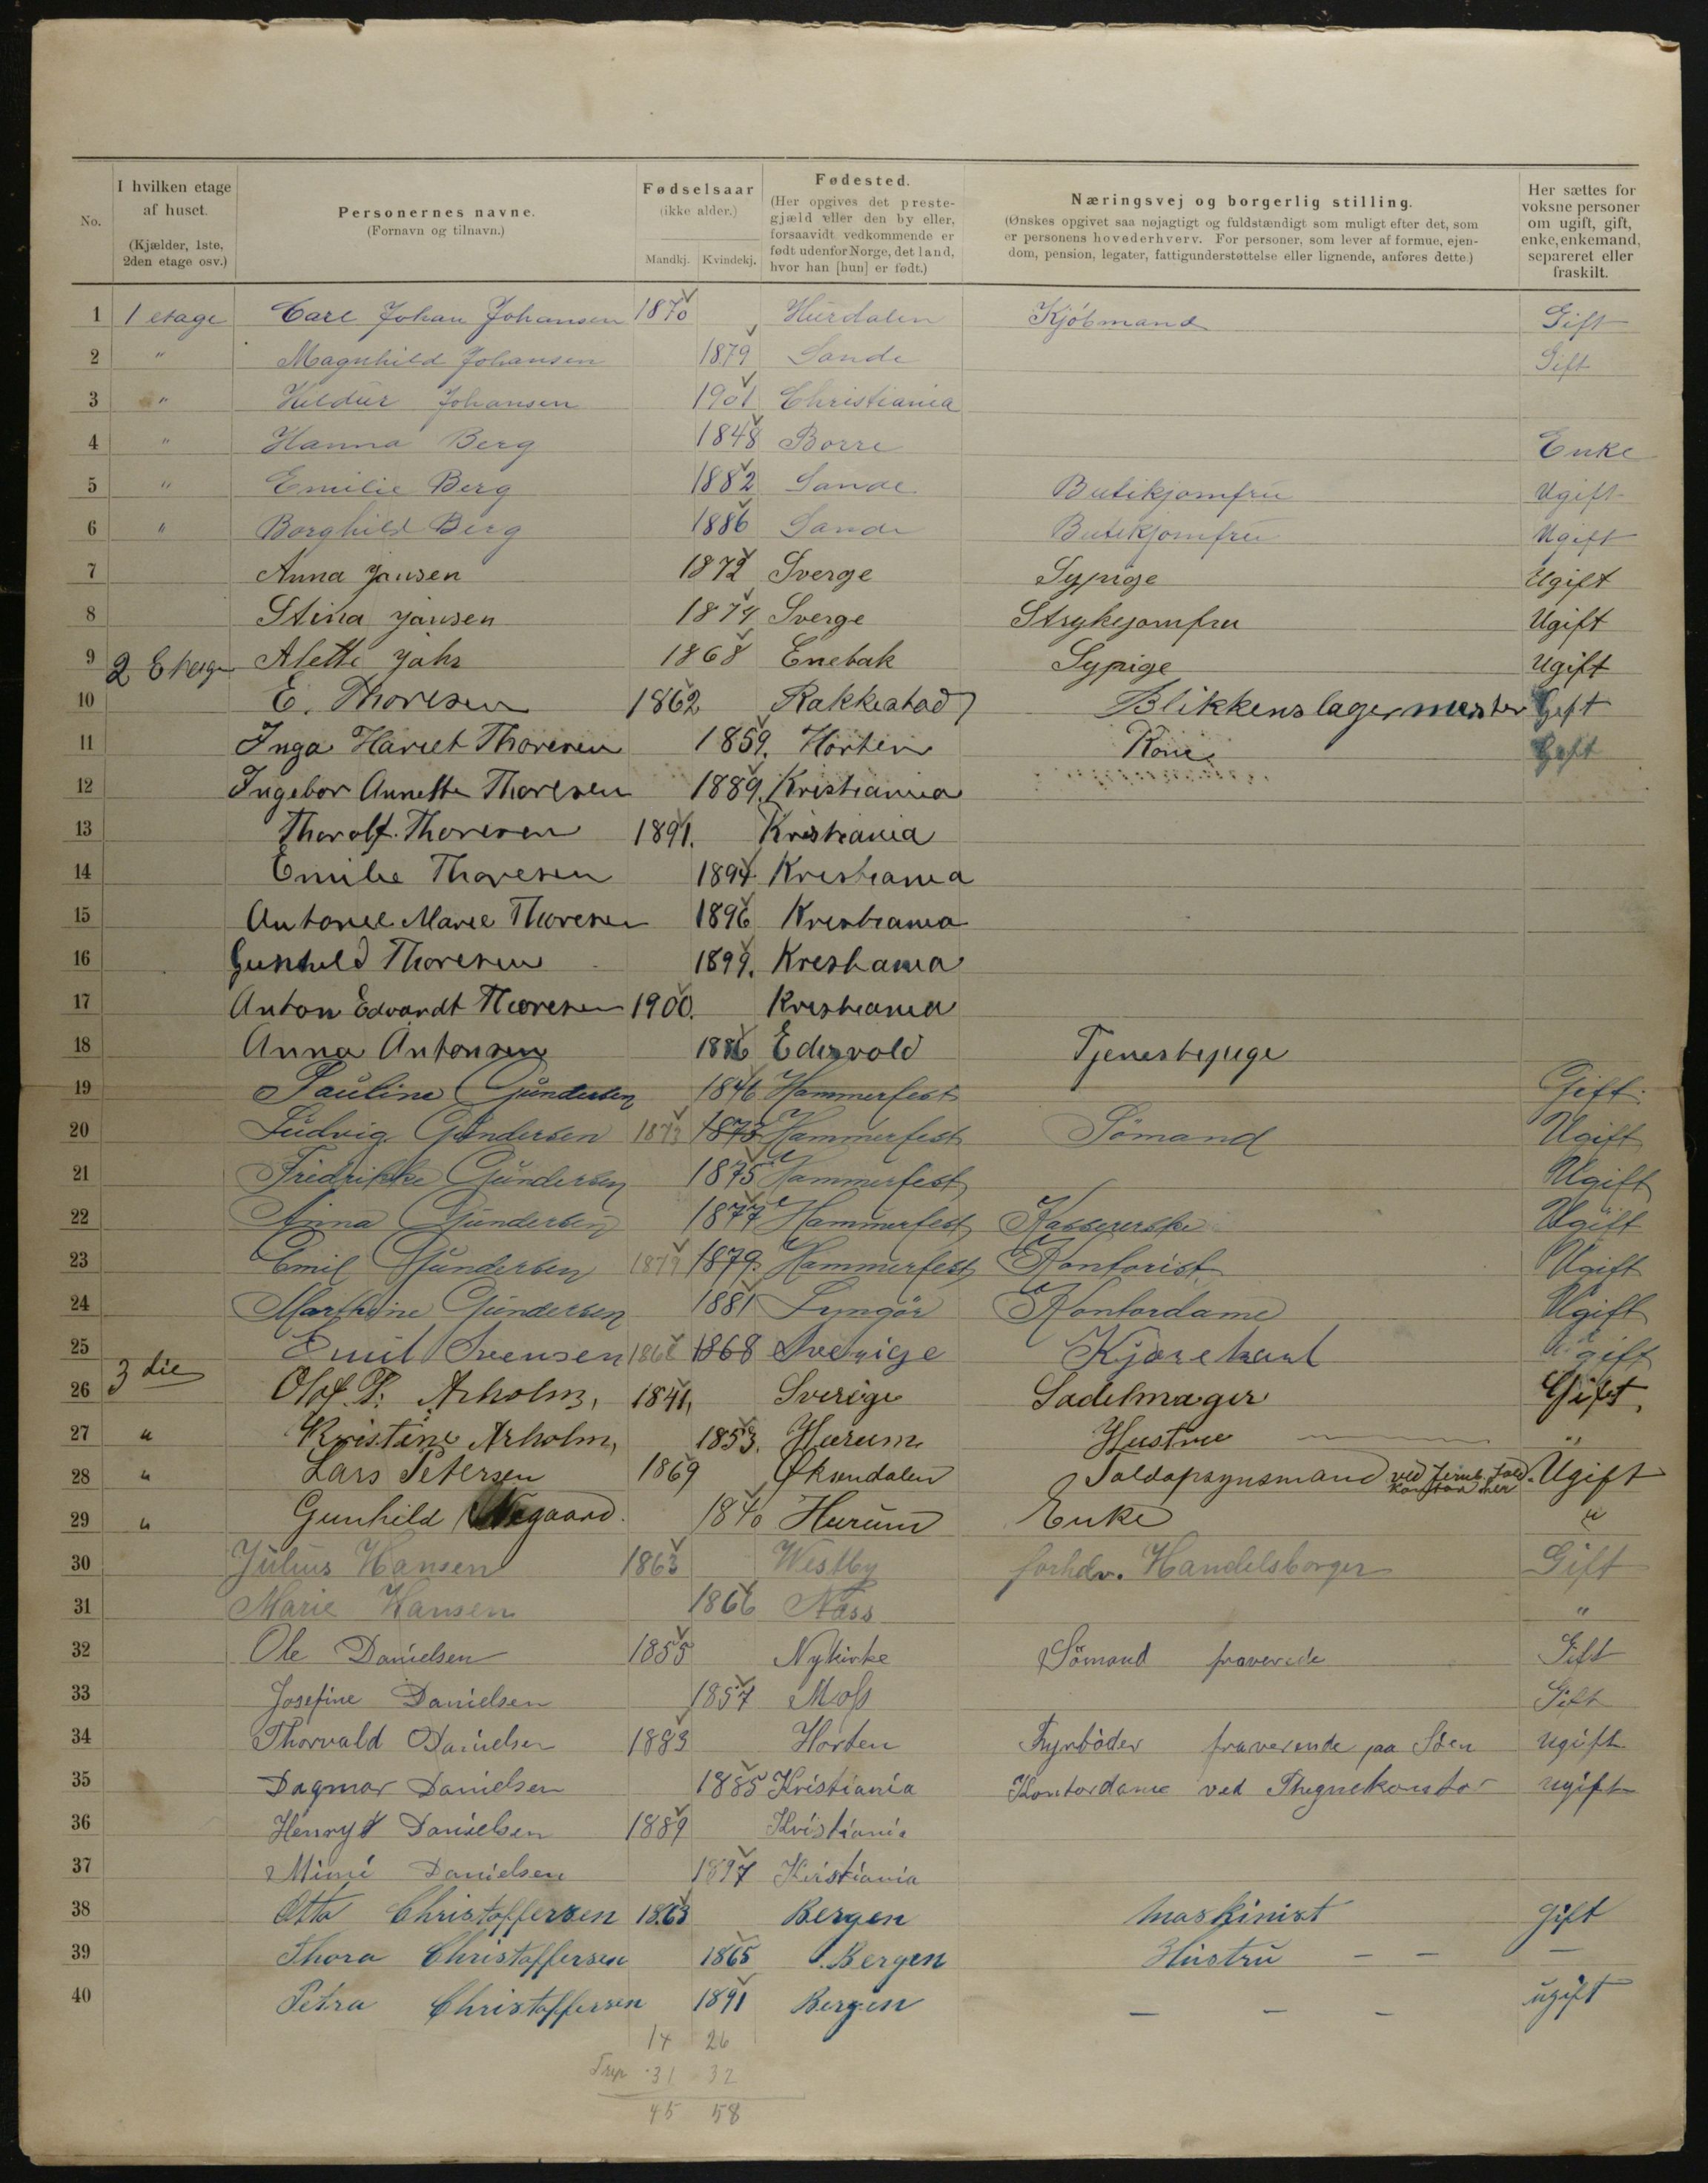 No.
I hvilken etage af huset.
(Kjælder, 1ste, 2den etage osv.)
Personernes navne.
(Fornavn og tilnavn.)
Fødselsaar
(ikke alder.)
Mandkj. Kvindekj.
Fødested.
(Her opgives det preste-
gjæld eller den by eller,
forsaavidt vedkommende er
født udenfor Norge, det land,
hvor han [hun] er født.)
Næringsvej og borgerlig stilling.
(Ønskes opgivet saa nøjagtigt og fuldstændigt som muligt efter det, som
er personens hovederhverv. For personer, som lever af formue, ejen-
dom, pension, legater, fattigunderstøttelse eller lignende, anføres dette.)
Her sættes for
voksne personer
om ugift, gift,
enke, enkemand,
separeret eller
fraskilt.
1 1 etage Carl Johan Johansen 1870 Hurdalen Kjöbmand Gift
2 " Magnhild Johansen 1879 Sande Gift
3 " Hildur Johansen 1901 Christiania
4 " Hanna Berg 1848 Borre Enke
5 " Emilie Berg 1882 Sande Butikjomfru Ugift
6 " Borghild Berg 1886 Sande Butikjomfru Ugift
7 Anna Jansen 1872 Sverge Sypige Ugift
8 Stina Jansen 1874 Sverge Strykejomfru Ugift
9 2 Etage Alette Jahr 1868 Enebak Sypige Ugift
10 E. Thoresen 1862 Rakkestad Blikkenslagermester Gift
11 Inga Hariet Thoresen 1859. Horten Kone Gift
12 Ingebor Annette Thoresen 1889. Kristiania
13 Thorolf Thoresen 1891. Kristiania
14 Emilie Thoresen 1894. Kristiania
15 Antonie Marie Thoresen 1896 Kristiania
16 Gunhild Thoresen 1899. Kristiania
17 Anton Edvardt Thoresen 1900. Kristiania
18 Anna Antonsen 1886 Edsvold Tjenestepige
19 Pauline Gundersen 1846 Hammerfest Gift.
20 Ludvig Gundersen 1873 1873 Hammerfest Sömand Ugift
21 Fredrikke Gundersen 1875 Hammerfest Ugift
22 Anna Gundersen 1877 Hammerfest Kassererske Ugift
23 Emil Gundersen 1879 1879. Hammerfest Kontorist Ugift
24 Marthine Gundersen 1881 Lyngör Kontordame Ugift
25 Emil Svensen 1868 1868 Sverige Kjørekarl Ugift
26 3 die Olof P. Arholm, 1841, Sverige Sadelmager Gift,
27 " Kristine Arholm, 1853. Hurum Hustru "
28 " Lars Petersen 1869 Øksendalen Toldopsynsmand ved Jernb. Told-kontor Ugift
29 " Gunhild 1840 Hurum Enke "
30 Julius Hansen 1863 Westby forhdv. Handelsborger Gift
31 Marie Hansen 1866 Næss "
32 Ole Danielsen 1855 Nykirke Sömand fraverede Gift
33 Josefine Danielsen 1857 Moss Gift
34 Thorvald Danielsen 1883 Horten Fyrböder fraverende paa Söen ugift
35 Dagmar Danielsen 1885 Kristiania Kontordame ved Thegnekontor ugift
36 Henry Danielsen 1889 Kristiania
37 Mimi Danielsen 1897 Kristiania
38 Otto Christoffersen 1863 Bergen Maskinist gift
39 Thora Christoffersen 1865 Bergen Hustru — — —
40 Petra Christoffersen 1891 Bergen — — — ugift
14 26
31 32
45 58